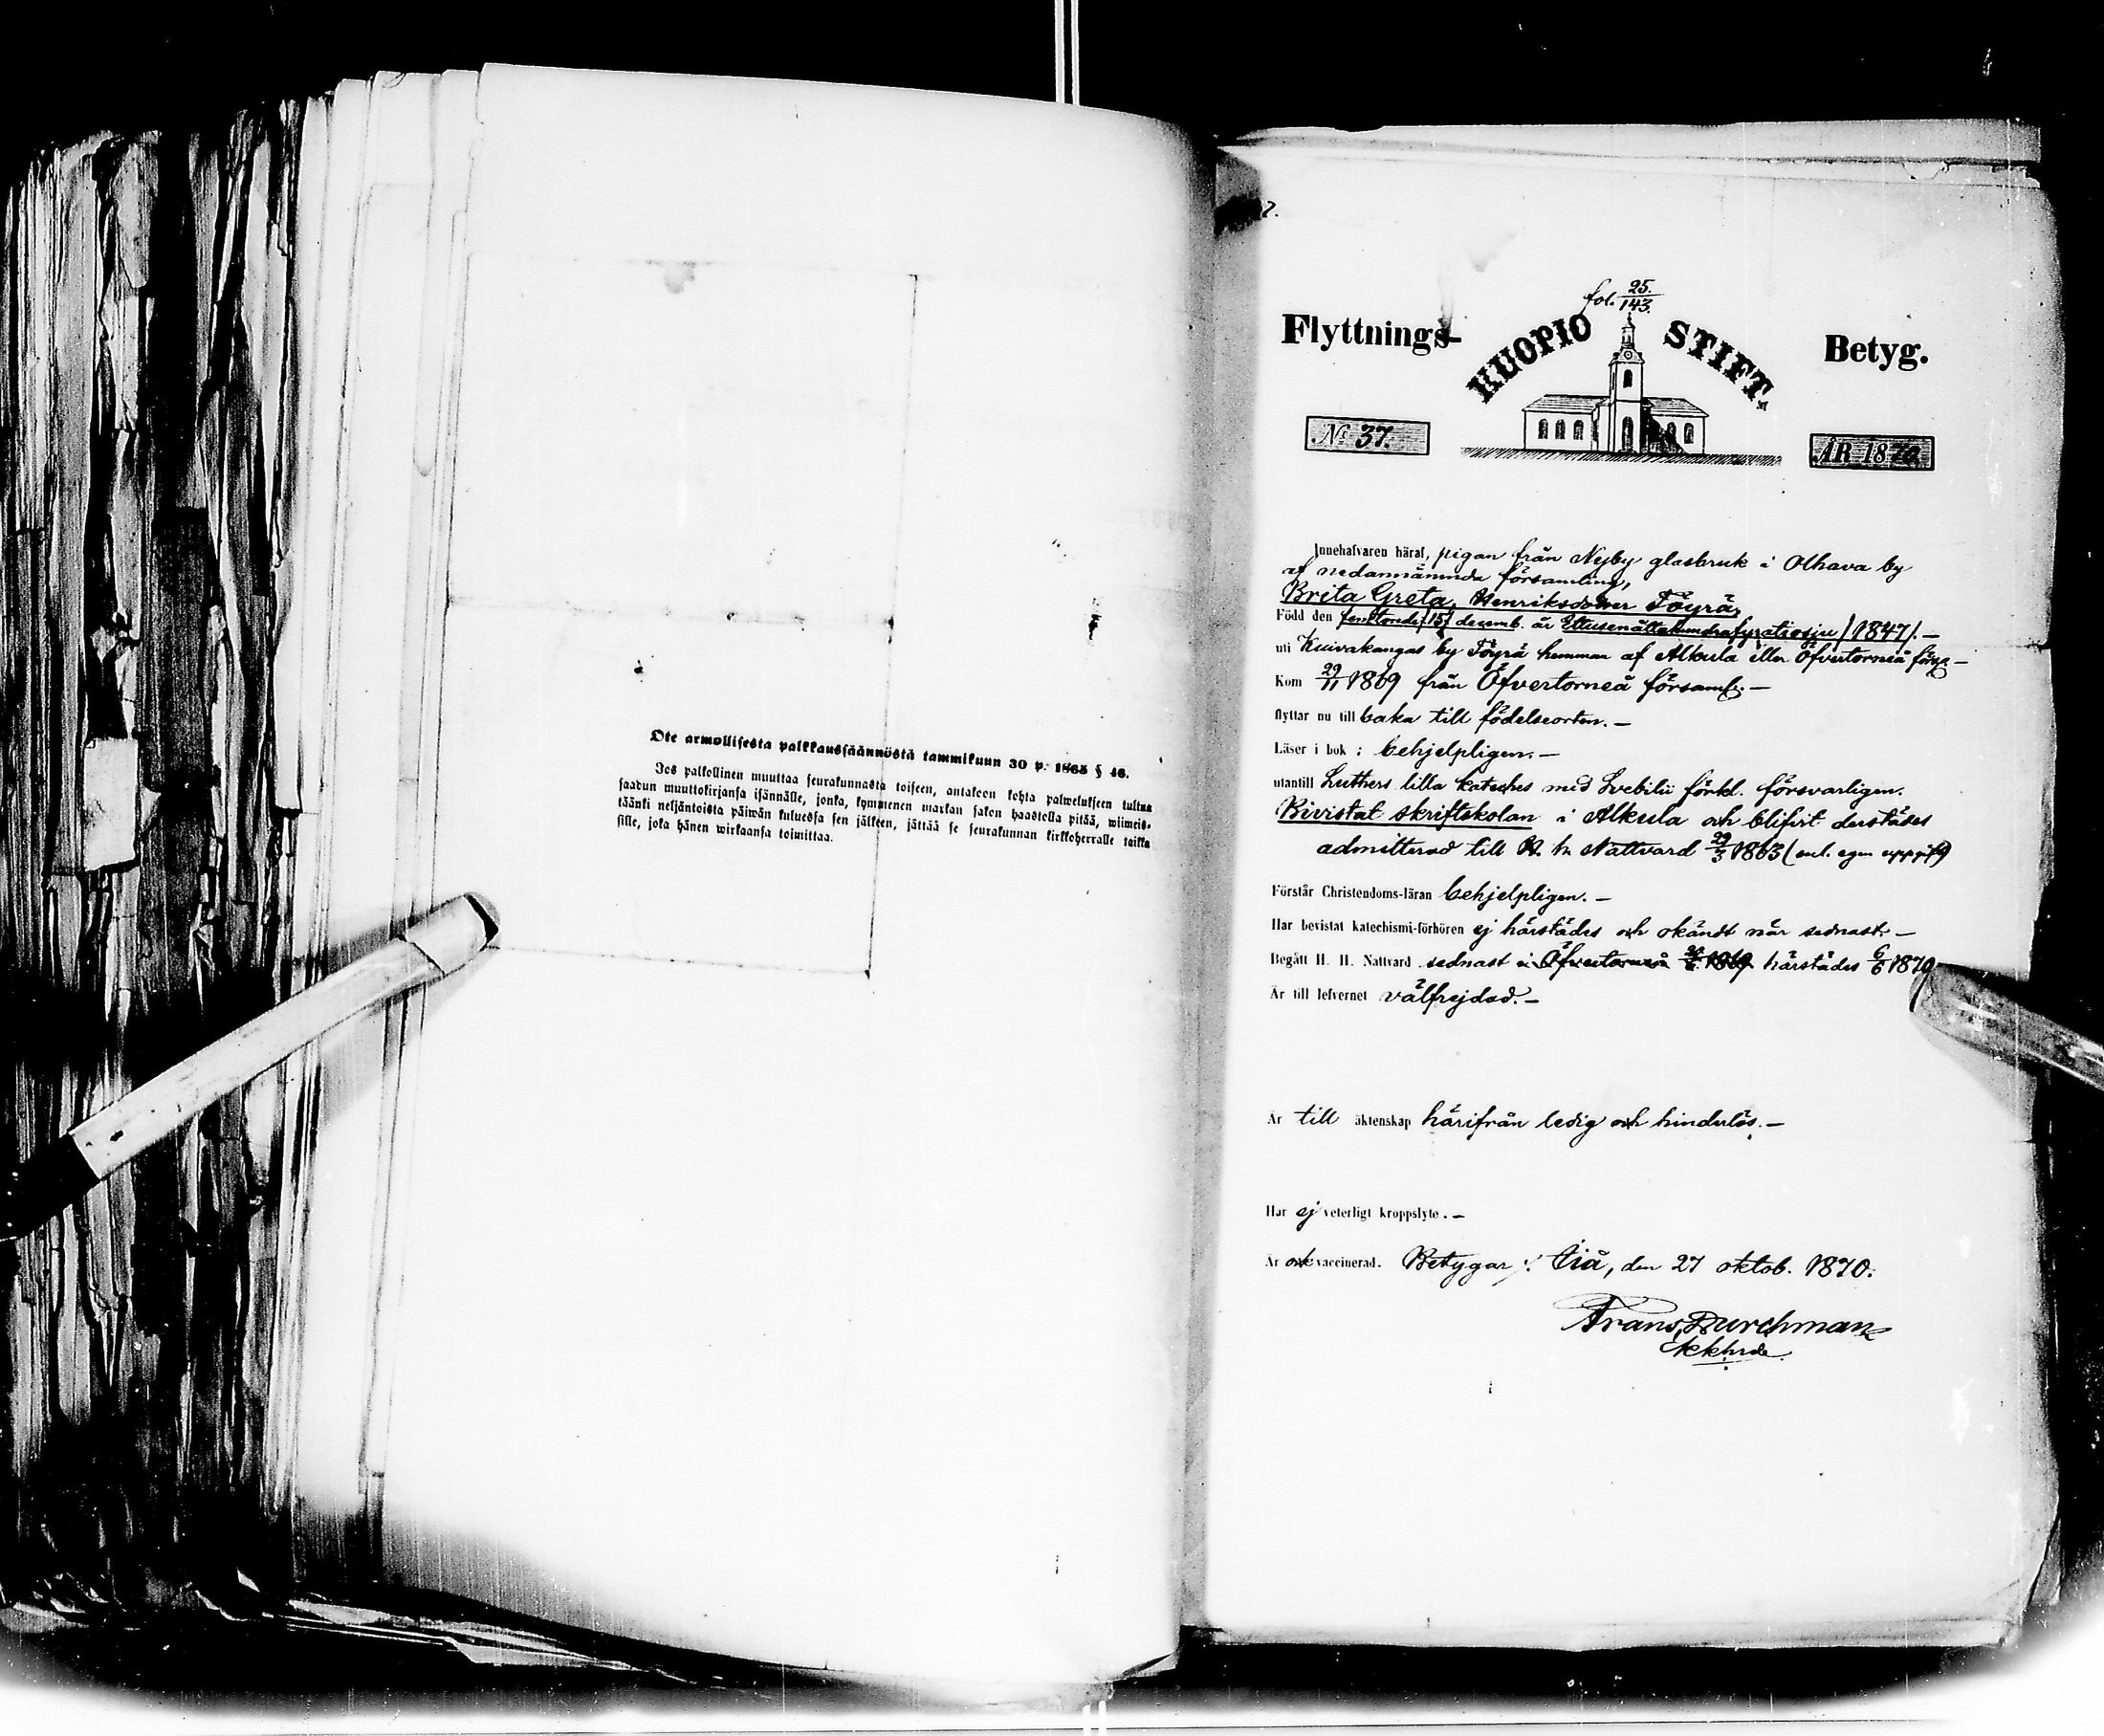 Ote armollisesta palkkaussäännöstä tammikuun 30 p. 1865 § 46.
Jos palkollinen muuttaa seurakunnasta toiseen, antakoon kohta palwelukseen tultua
saadun muuttokirjansa isännälle, jonka, kymmenen markan sakon haastolla pitää, wiimeis-
täänki neljäntoista päiwän kuluessa sen jälkeen, jättää se seurakunnan kirkkoherralle taikka
sille, joka hänen wirkaansa toimittaa.
7.
fol. 25./143.
Flyttnings- KUOPIO STIFT. Betyg.
No 37. ÅR 1870.
Innehafvaren häraf, pigan från Nyby glasbruk i Olhava by
af nedannämnda församling,
Brita Greta, Henriksdotter Töyrä,
Född den femtonde /15/ decemb. år Ettusenåttahundrafyratiosju /1847/. –
uti Kuivakangas by Töyrä hemman af Alkula eller Öfvertorneå förs. –
Kom 29/11 1869 från Öfvertorneå församl. –
flyttar nu till baka till födelseorten. –
Läser i bok : behjelpligen. –
utantill Luthers lilla kateches med Svebilii förkl. försvarligen.
Bivistat skriftskolan i Alkula och blifvit derstädes
admitterad till H. h. Nattvard 29/3 1863 (enl. egen uppgift)
Förstår Christendoms-läran behjelpligen. –
Har bevistat katechismi-förhören ej härstädes och okändt når sednast. –
Begått H. H. Nattvard sednast i Öfvertorneå 1869 härstädes 6/6 1870
Är till lefvernet välfrejdad. –
Är till äktenskap härifrån ledig och hinderlös. –
Har ej veterligt kroppslyte. –
Är och vaccinerad. Betygar /: Iiå, den 27 oktob. 1870.
Frans Durchman